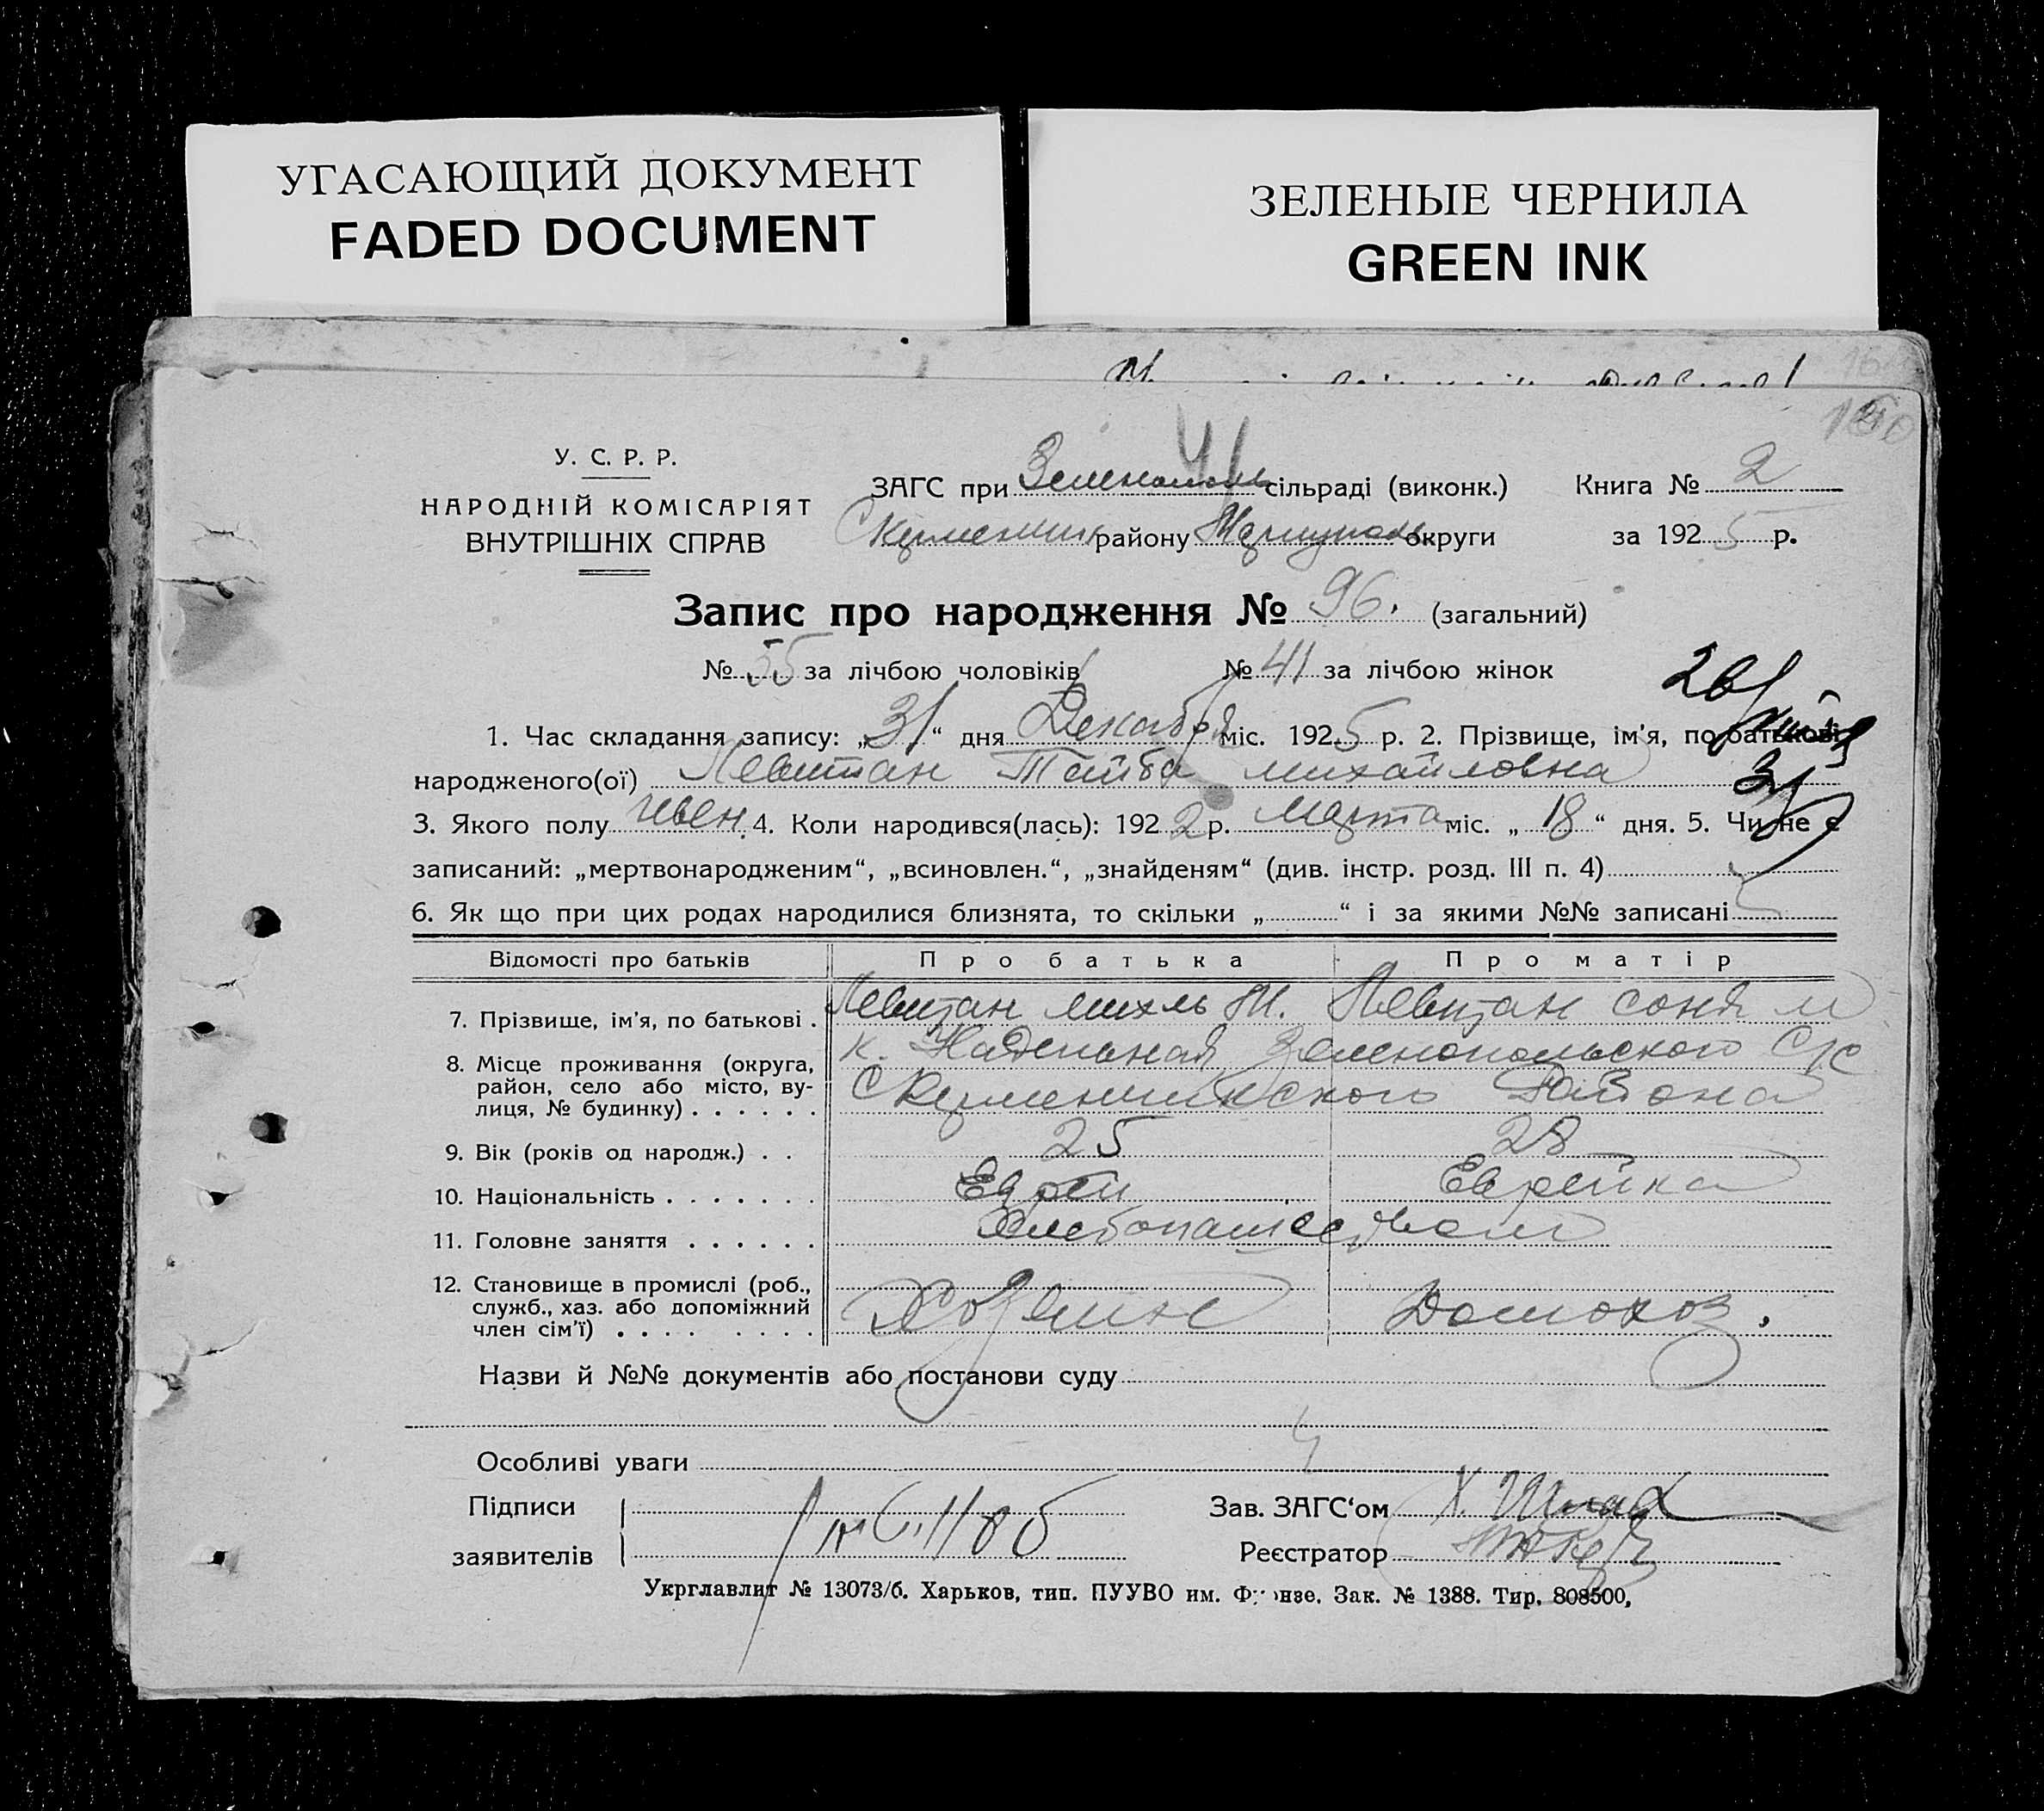 УГАСАЮЩИЙ ДОКУМЕНТ
FADED DOCUMENT
ЗЕЛЕНЫЕ ЧЕРНИЛА
GREEN INK
У. С. Р. Р.
НАРОДНІЙ КОМІСАРІЯТ
ВНУТРІШНІХ СПРАВ
ЗАГС при Зеленополь сільраді (виконк.) Книга № 2
району округи за 1925 р.
Запис про народження № 96. (загальний)
№ 55 за лічбою чоловіків № 41 за лічбою жінок
1. Час складання запису: „31“ дня Декабря міс. 1925 р. 2. Прізвище, ім’я, по батькові
народженого(ої) Левитан Тайба Михайловна
3. Якого полу жен. 4. Коли народився(лась): 1922 р. Марта міс. „18“ дня. 5. Чи не є
записаний: „мертвонародженим“, „всиновлен.“, „знайденям“ (див. інстр. розд. III п. 4)
6. Як що при цих родах народилися близнята, то скільки „ “ і за якими №№ записані
Відомості про батьків Про батька Про матір
7. Прізвище, ім’я, по батькові . Левитан Михль М. Левитан Соня М
8. Місце проживання (округа, район, село або місто, вулиця, № будинку) . . . . . . к. Надельная Зеленопольского С/с
Района
9. Вік (років од народж.) . . 25 28
10. Національність . . . . . . . Еврей Еврейка
11. Головне заняття . . . . . . Хлебопашеством
12. Становище в промислі (роб., служб., хаз. або допоміжний член сім’ї) . . . . . . . . Хозяин Домохоз.
Назви й №№ документів або постанови суду
Особливі уваги
Підписи
заявителів
Зав. ЗАГС‘ом
Реєстратор
Укрглавлит № 13073/б. Харьков, тип. ПУУВО им. Фрунзе. Зак. № 1388. Тир. 808500,